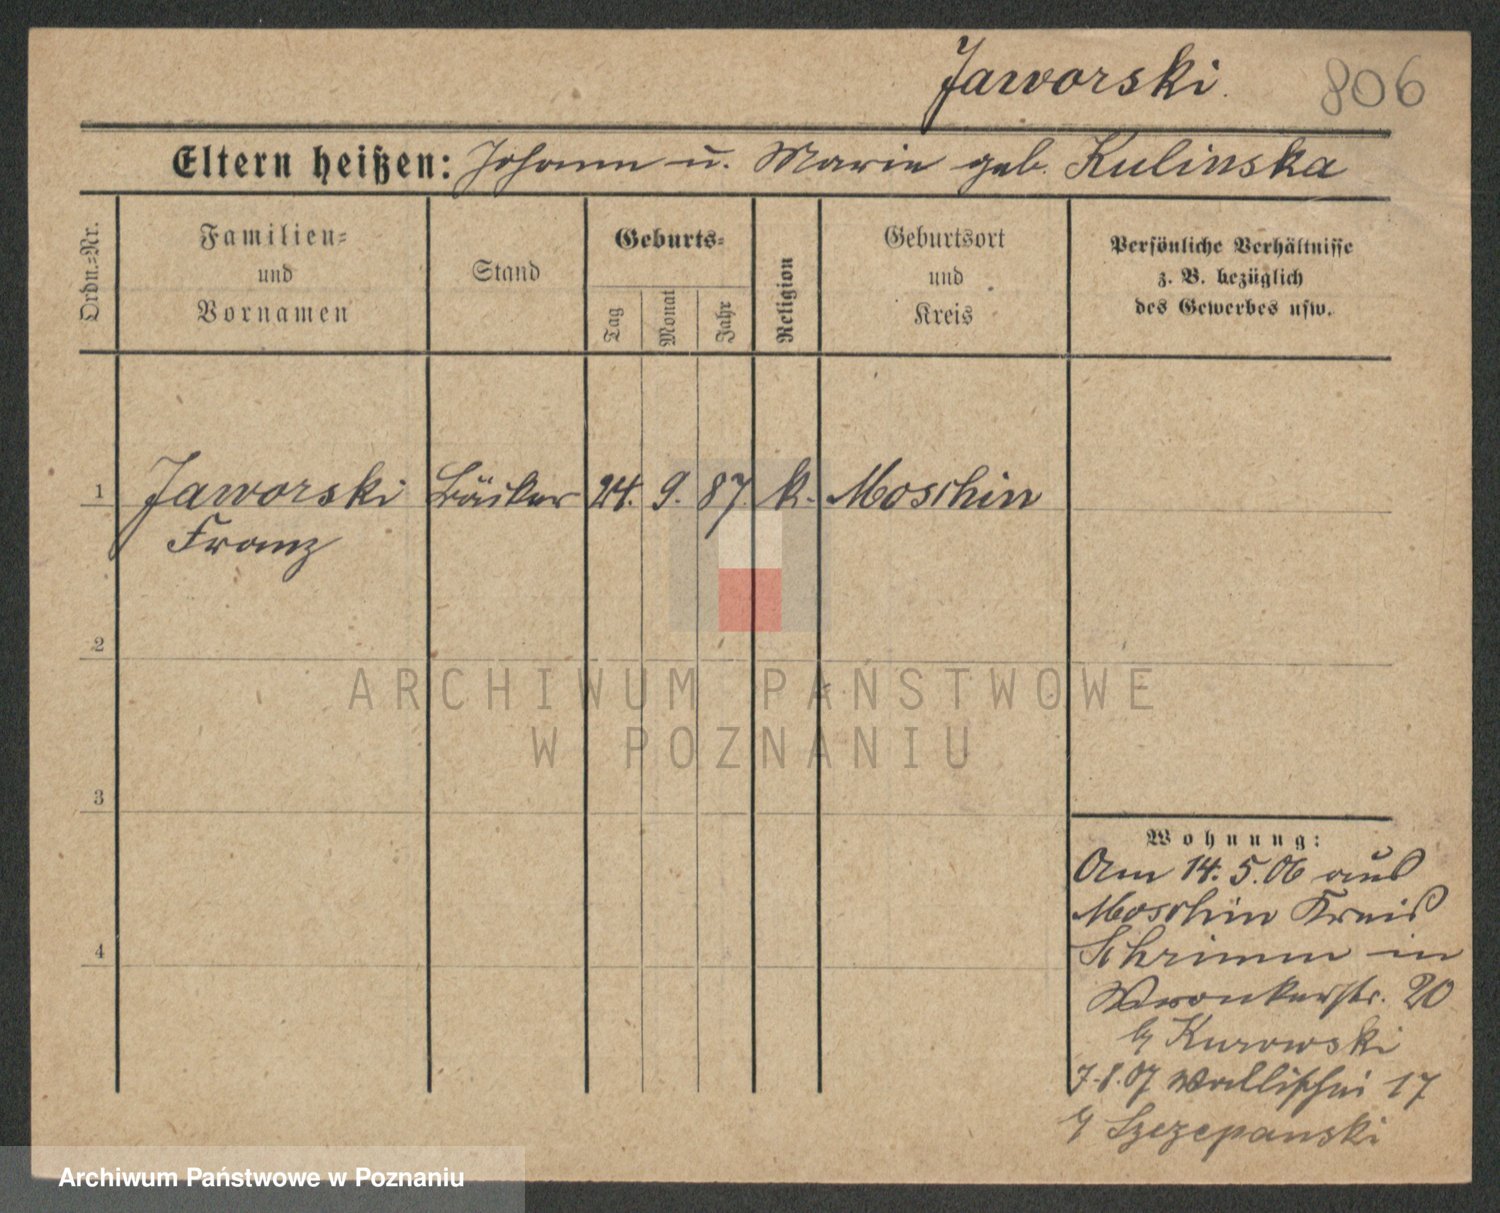 Jaworski. 806
Eltern heißen: Johann u. Marie geb. Kulinska
Ordn.=Nr.
Familien=
und
Vornamen
Stand
Geburts=
Tag
Monat
Jahr
Religion
Geburtsort
und
Kreis
Persönliche Verhältnisse
z. B. bezüglich
des Gewerbes usw.
1 Jaworski Bäcker 24. 9. 87. k. Moschin
Franz
2
3
4
Wohnung:
Am 14. 5. 06 aus
Moschin Kreis
Schrimm in
Wronkerstr. 20
b/ Kurowski
7.8.07 Wallischei 17
b/ Szczepanski
ARCHIWUM PAŃSTWOWE
W POZNANIU
Archiwum Państwowe w Poznaniu